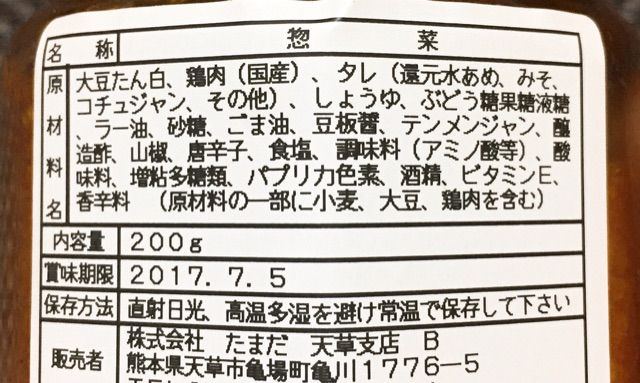 名称 惣菜
原材料名 大豆たん白、鶏肉（国産）、タレ（還元水あめ、みそ、
コチュジャン、その他）、しょうゆ、ぶどう糖果糖液糖
、ラー油、砂糖、ごま油、豆板醤、テンメンジャン、醸
造酢、山椒、唐辛子、食塩、調味料（アミノ酸等）、酸
味料、増粘多糖類、パプリカ色素、酒精、ビタミンE、
香辛料 （原材料の一部に小麦、大豆、鶏肉を含む）
内容量 200g
賞味期限 2017.7.5
保存方法 直射日光、高温多湿を避け常温で保存して下さい
販売者 株式会社 たまだ 天草支店 B
熊本県天草市亀場町亀川1776-5